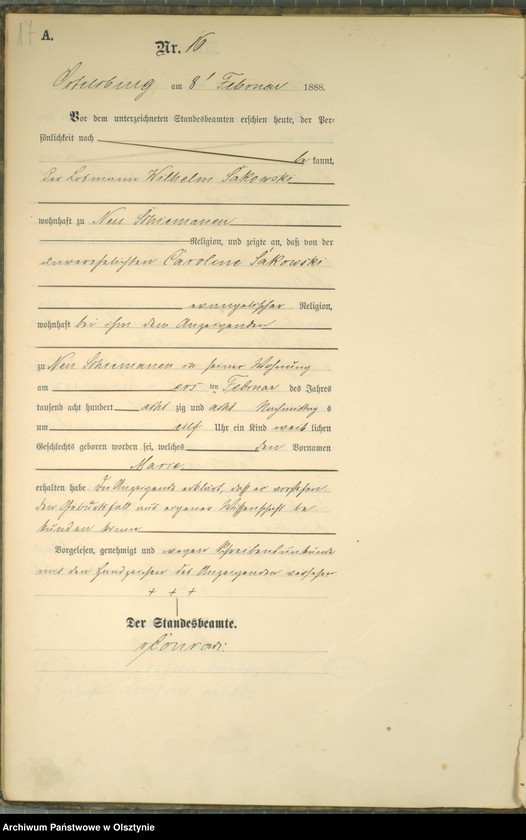 17
A.
Nr. 16
Ortelsburg am 8t Februar 1888.
Vor dem unterzeichneten Standesbeamten erschien heute, der Per-
sönlichkeit nach
be kannt,
der Losmann Wilhelm Sakowski
wohnhaft zu Neu Schiemanen
Religion, und zeigte an, daß von der
unverehelichten Caroline Sakowski
evangelischer Religion,
wohnhaft bei ihm dem Anzeigenden
zu Neu Schiemanen in seiner Wohnung
am ersten Februar des Jahres
tausend acht hundert acht zig und acht Nachmittag s
um elf Uhr ein Kind weib lichen
Geschlechts geboren worden sei, welches den Vornamen
Marie
erhalten habe. Der Anzeigende erklärt, daß er vorstehen-
den Geburtsfall aus eigener Wissenschaft be
kunden könne
Vorgelesen, genehmigt und wegen Schreibensunkunde
mit den Handzeichen des Anzeigenden versehen
+ + +
Der Standesbeamte.
Conradi
Archiwum Państwowe w Olsztynie